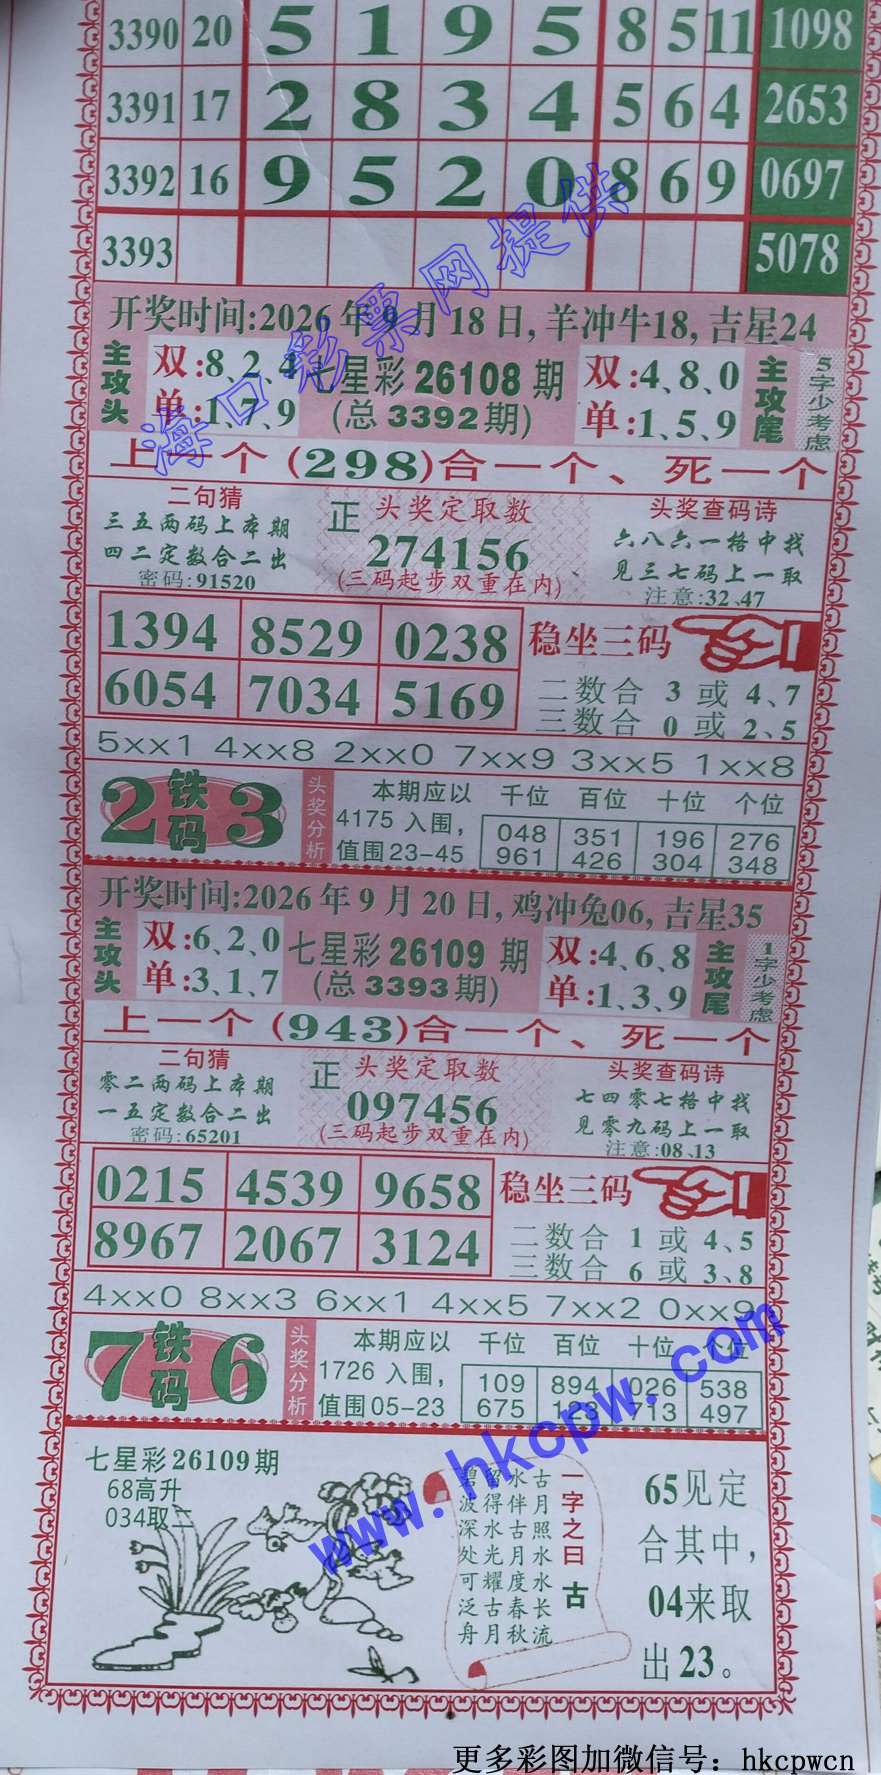 3390 20 5 1 9 5 8 5 11 1098
3391 17 2 8 3 4 5 6 4 2653
3392 16 9 5 2 0 8 6 9 0697
3393 5078
海口彩票网提供
开奖时间:2026年9月18日,羊冲牛18,吉星24
主攻头
双:8、2、4
单:1、7、9
七星彩 26108 期
(总 3392 期)
双:4、8、0
单:1、5、9
主攻尾
5字少考虑
上一个(298)合一个、死一个
二句猜
三五两码上本期
四二定数合二出
密码:91520
正 头奖定取数
274156
(三码起步双重在内)
头奖查码诗
六八六一格中找
见三七码上一取
注意:32、47
1394 8529 0238
6054 7034 5169
稳坐三码
二数合 3 或 4、7
三数合 0 或 2、5
5xx1 4xx8 2xx0 7xx9 3xx5 1xx8
2 铁码 3
头奖分析
本期应以
4175 入围,
值围23-45
千位 百位 十位 个位
048 351 196 276
961 426 304 348
开奖时间:2026年9月20日,鸡冲兔06,吉星35
主攻头
双:6、2、0
单:3、1、7
七星彩 26109 期
(总 3393 期)
双:4、6、8
单:1、3、9
主攻尾
1字少考虑
上一个(943)合一个、死一个
二句猜
零二两码上本期
一五定数合二出
密码:65201
正 头奖定取数
097456
(三码起步双重在内)
头奖查码诗
七四零七格中找
见零九码上一取
注意:08、13
0215 4539 9658
8967 2067 3124
稳坐三码
二数合 1 或 4、5
三数合 6 或 3、8
4xx0 8xx3 6xx1 4xx5 7xx2 0xx9
7 铁码 6
头奖分析
本期应以
1726 入围,
值围05-23
千位 百位 十位 个位
109 894 026 538
675 123 713 497
www.hkcpw.com
七星彩26109期
68高升
034取二
一字之曰 古
古月照水水长流
水伴古月度春秋
留得水光耀古月
碧波深处可泛舟
65见定
合其中，
04来取
出23。
更多彩图加微信号：hkcpwcn